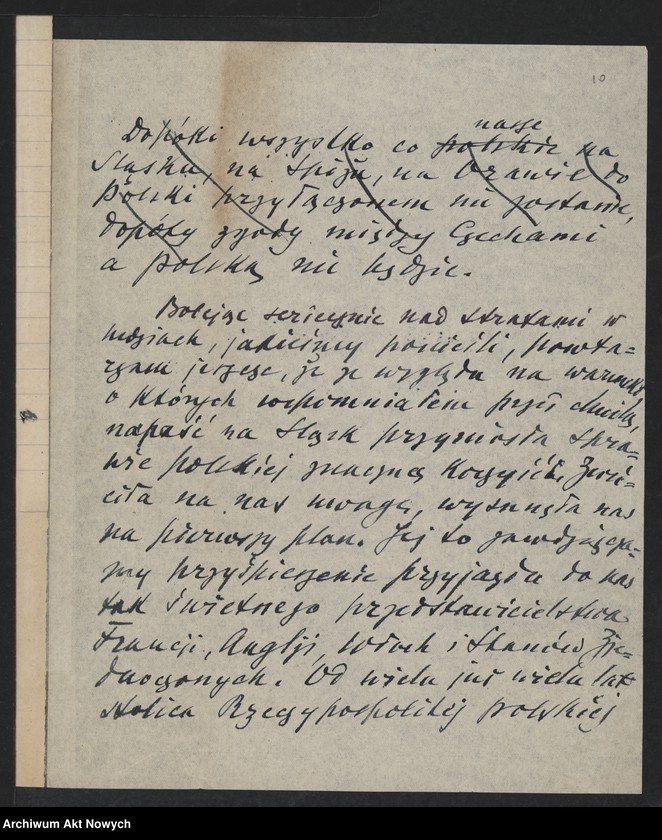 10
Dopóki wszystko co polskie nasze na
Śląsku, na Spiżu, na Orawie do
Polski przyłączonem nie zostanie,
dopóty zgody między Czechami
a polską nie będzie.
Bolejąc serdecznie nad stratami w
ludziach, jakieśmy ponieśli, powta-
rzam jeszcze, że ze względu na warunki
o których wspomniałem przed chwilą,
napaść na Śląsk przyniosła spra-
wie polskiej znaczną korzyść. Zwró-
ciła na nas uwagę, wysunęła nas
na pierwszy plan. Jej to zawdzięcza-
my przyśpieszenie przyjazdu do nas
tak świetnego przedstawicielstwa
Francji, Anglji, Włoch i Stanów Zje-
dnoczonych. Od wielu już wielu lat
stolica Rzeczypospolitej polskiej
Archiwum Akt Nowych